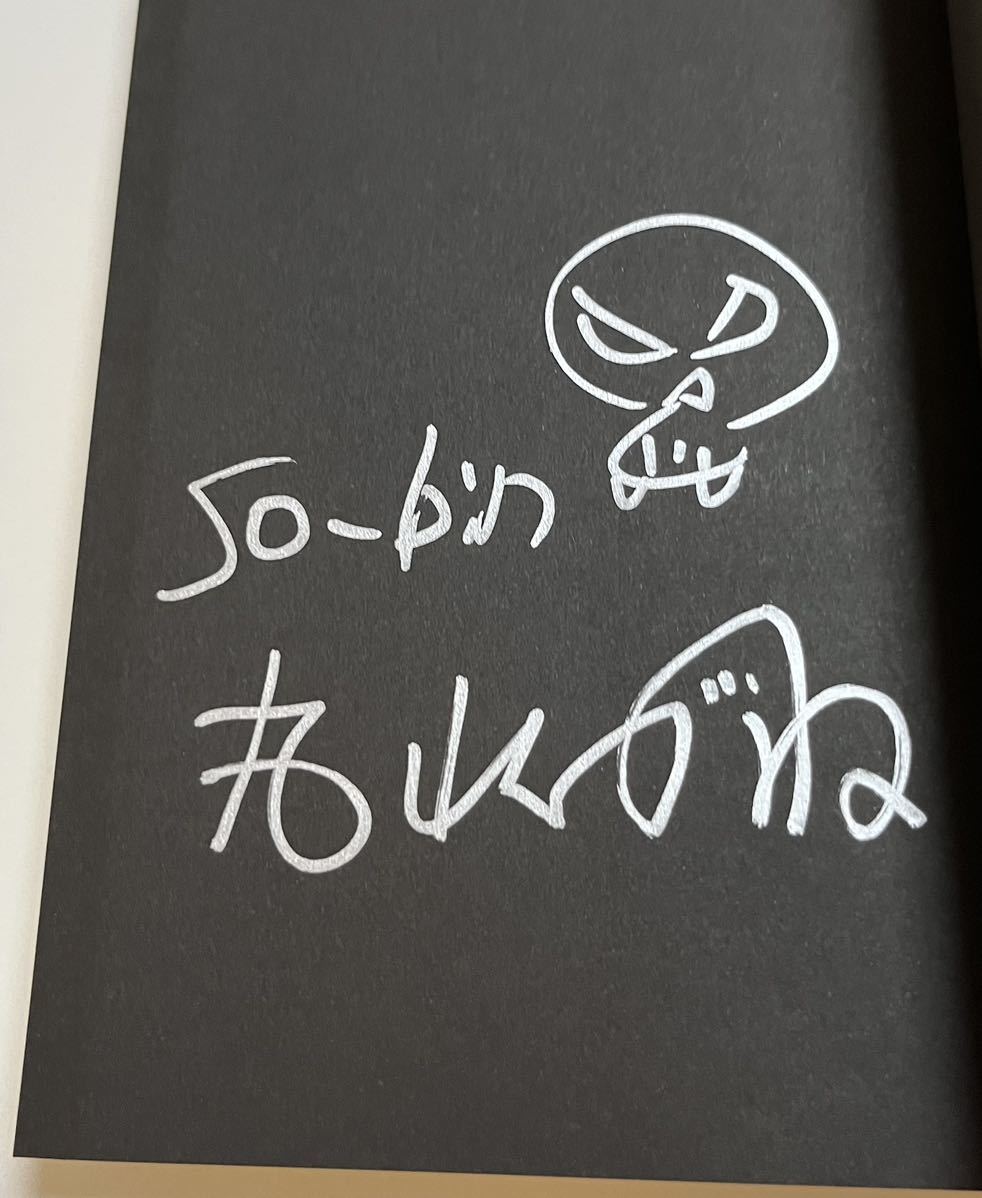 so-bin
丸山くがね